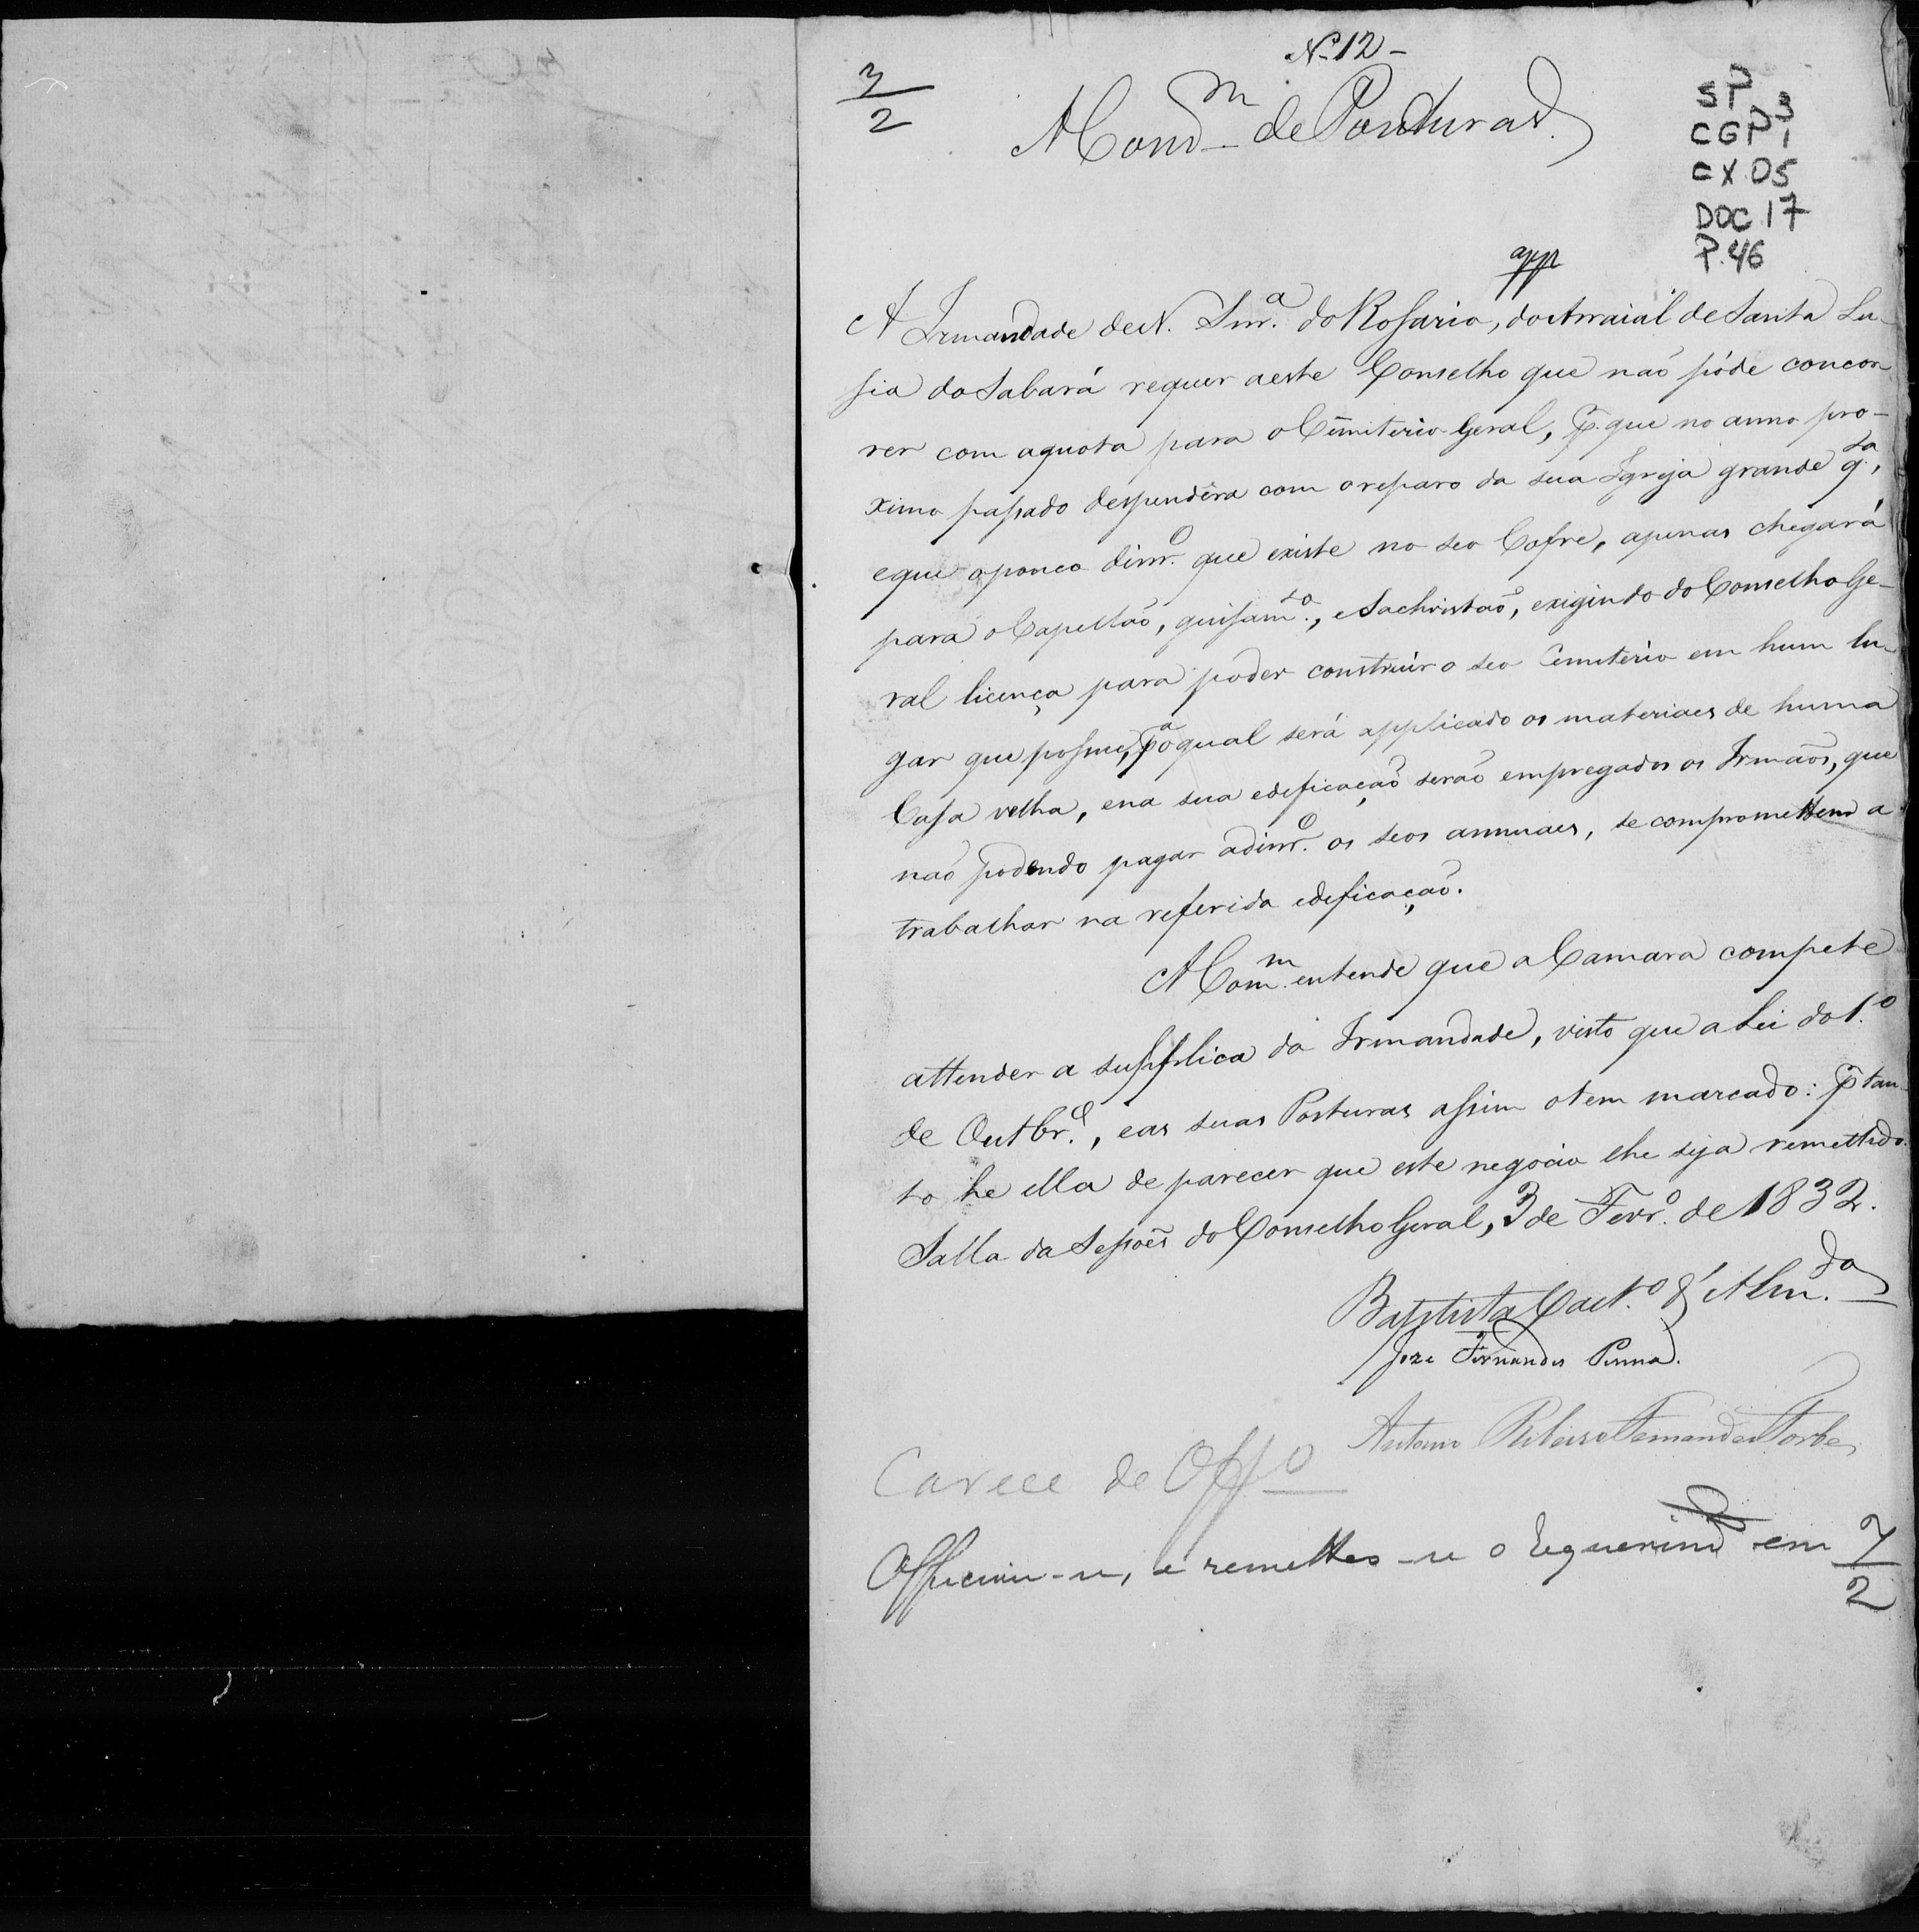 Nº 12-
3/2
A Comm de Posturas.
SP
CGP 3
1
CX.05
DOC 17
P.46
app
A Irmandade de N. Snrª do Rosario, do Arraial de Santa Lu-
sia do Sabará requer a este Conselho que não póde concor
rer com a quota para o Cemiterio Geral, p. que no anno pro-
ximo passado despendêra com o reparo da sua Igreja grande q.ta,
e que o pouco dinrº que existe no seo Cofre, apenas chegará
para o Capellão, guisam.to, e Sachristão, exigindo do Conselho Ge-
ral licença para poder construir o seo Cemiterio em hum lu-
gar que possue, pª o qual será applicado os materiaes de huma
Casa velha, e na sua edeficação serão empregados os Irmãos, que
não podendo pagar a dinrº os seos annuaes, se comprometem a
trabalhar na referida edeficação.
A Comm entende que a Camara compete
attender a supplica da Irmandade, visto que a Lei do 1º
de Outbr.e, e as suas Posturas assim o tem marcado: p tan-
to he ella de parecer que este negocio lhe seja remettido.
Salla da Sessões do Conselho Geral, 3 de Fevrº de 1832.
Baptista Caetº d'Alm.da
Joze Fernandes Penna.
Antonio Ribeiro Fernandes Forbes
Carece de Offº
Officiou-se, e remetteo-se o Requerim em 7/2